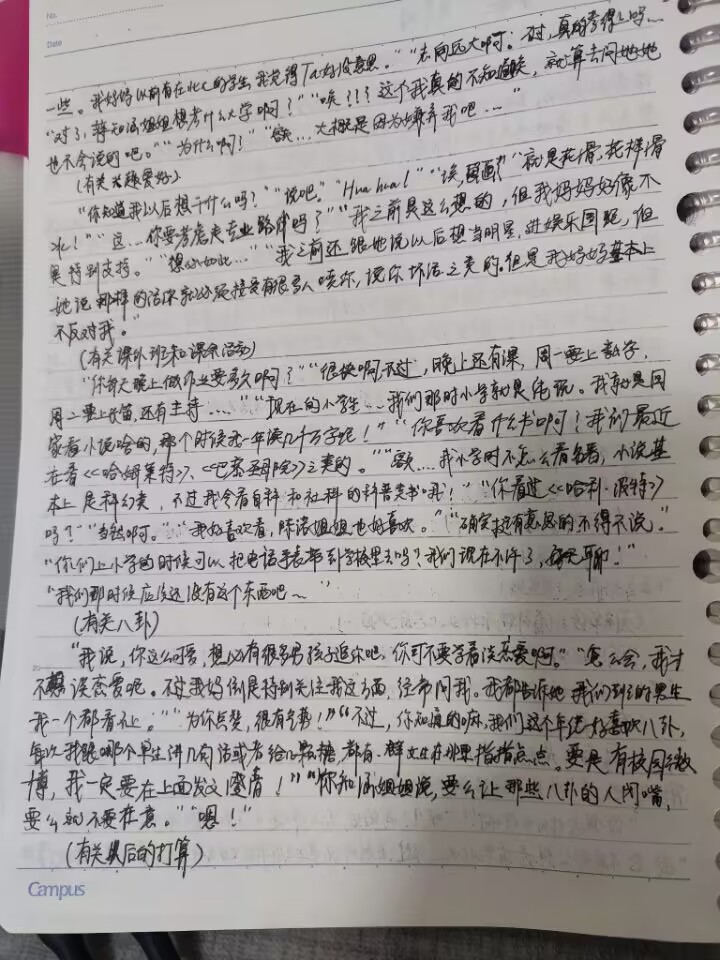 No.
Date
一些。我妈妈以前有在北仑的学生,我觉得Ta好没意思。""志向远大啊。不过,真的考得上吗…
"对了,蒋知涵姐姐想考什么大学啊?""唉???这个我真的不知道唉,就算去问她她
也不会说的吧。""为什么啊?""额…大概是因为嫌弃我吧…"
(有关兴趣爱好)
"你知道我以后想干什么吗?""说吧。""Hua hua!""诶,画画?""就是花滑,花样滑
冰!""这…你要考虑走专业路线吗?""我之前是这么想的,但我妈妈好像不
是特别支持。""想必如此…""我之前还跟她说以后想当明星,进娱乐圈呢,但
她说那样的话你就必须接受有很多人喷你,说你坏话之类的。但是我妈妈基本上
不反对我。"
(有关课外班和课余活动)
"你每天晚上做作业要多久啊?""很快啊,不过,晚上还有课,周一要上数学,
周二要上长笛,还有主持……""现在的小学生…我们那时小学就是纯玩。我就是回
家看小说啥的,那个时候我一年读几千万字呢!""你喜欢看什么书啊?我们最近
在看《哈姆莱特》、《巴黎圣母院》之类的。""额…我小学时不怎么看名著,小说基
本上是科幻类,不过我会看自科和社科的科普类书哦!""你看过《哈利·波特》
吗?""当然啊。""我好喜欢看,陈诺姐姐也好喜欢。""确实挺有意思的不得不说。"
"你们上小学的时候可以把电话手表带到学校里去吗?我们现在不许了,好无聊!"
"我们那时候应该还没有这个东西吧~"
(有关八卦)
"我说,你这么可爱,想必有很多男孩子追你吧,你可不要学着谈恋爱啊。""怎么会,我才
不想谈恋爱呢。不过我妈倒是特别关注我这方面,经常问我。我都告诉她我们班的男生
我一个都看不上。""为你点赞,很有气势!""不过,你知道的嘛,我们这个年纪好喜欢八卦,
每次我跟哪个男生讲几句话或者给几颗糖,都有一群女生在那里指指点点。要是有校园微
博,我一定要在上面发文澄清!""你知涵姐姐说,要么让那些八卦的人闭嘴,
要么就不要在意。""嗯!"
(有关最后的打算)
Campus